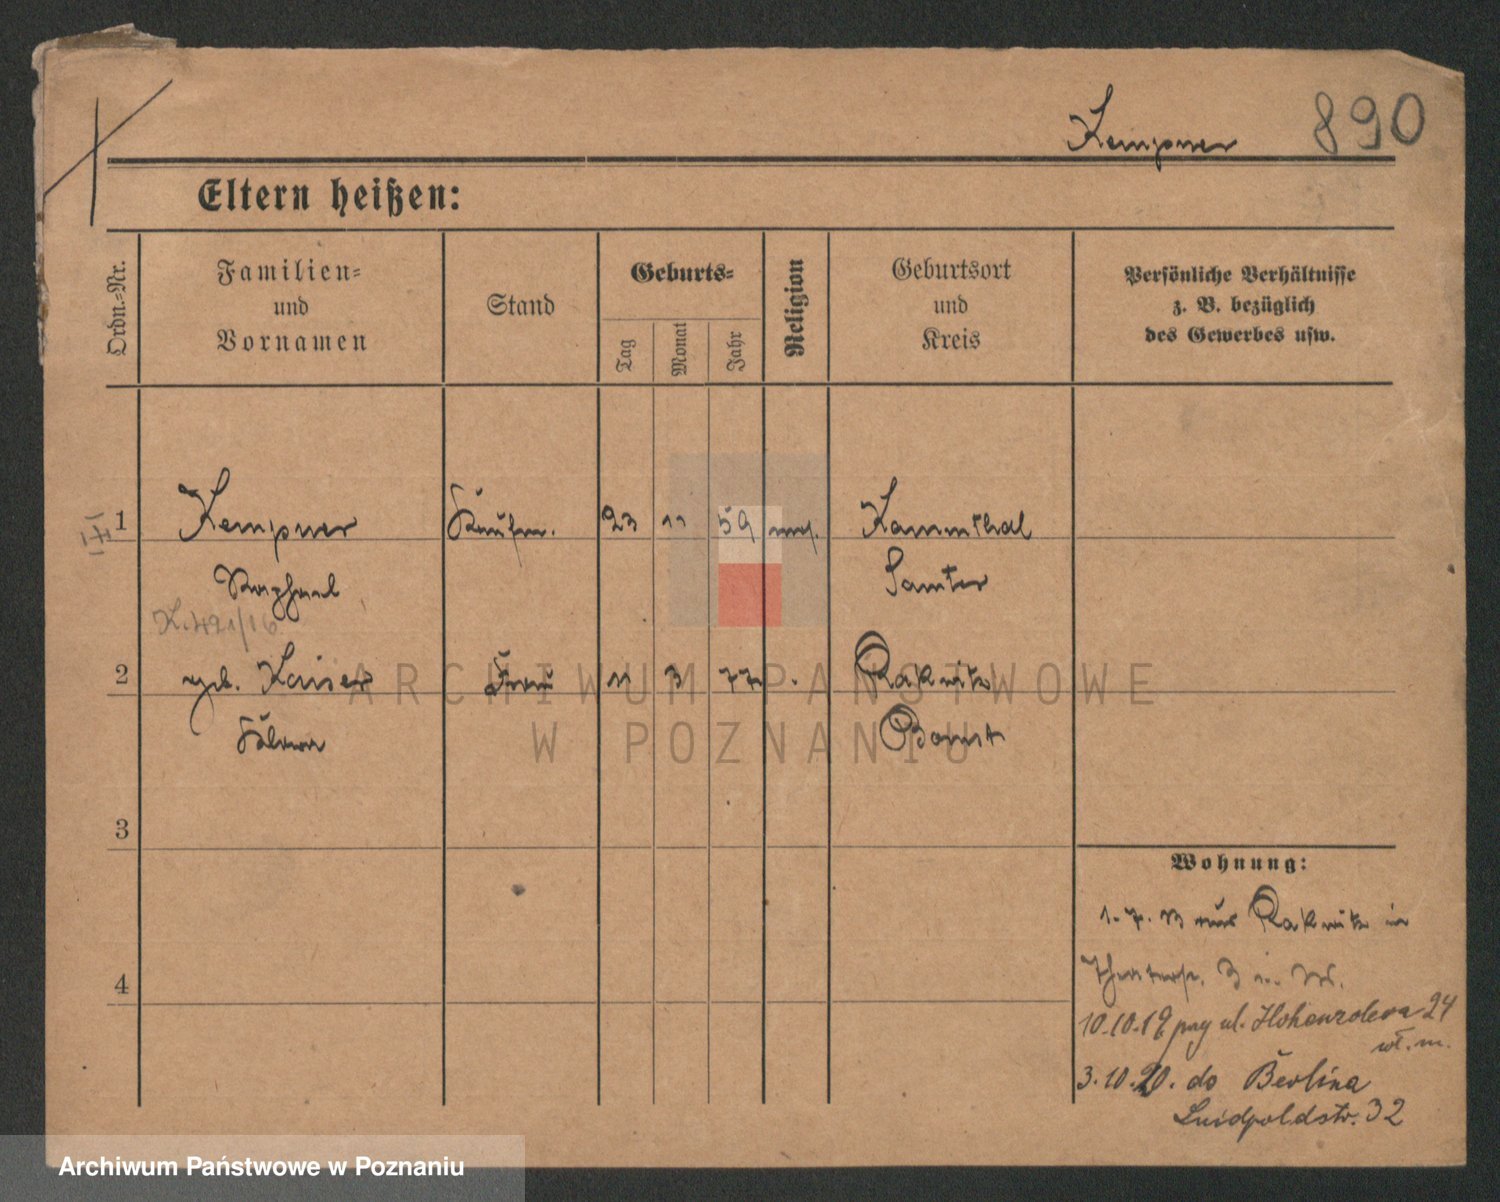 Kempner 890
Eltern heißen:
Ordn.=Nr.
Familien=
und
Vornamen
Stand
Geburts=
Tag
Monat
Jahr
Religion
Geburtsort
und
Kreis
Persönliche Verhältnisse
z. B. bezüglich
des Gewerbes usw.
1 Kempner Kaufm. 23 11 59 mos.
Raphael Samter
2 geb. Kaiser Frau 11 3 77 Rakwitz
Bomst
3
4
Wohnung:
1. 7. 13 aus Rakwitz in
10.10.19 przy ul. Hohenzolerna 24
wł. m.
3.10.20. do Berlina
Luidpoldstr. 32
ARCHIWUM PAŃSTWOWE
W POZNANIU
Archiwum Państwowe w Poznaniu